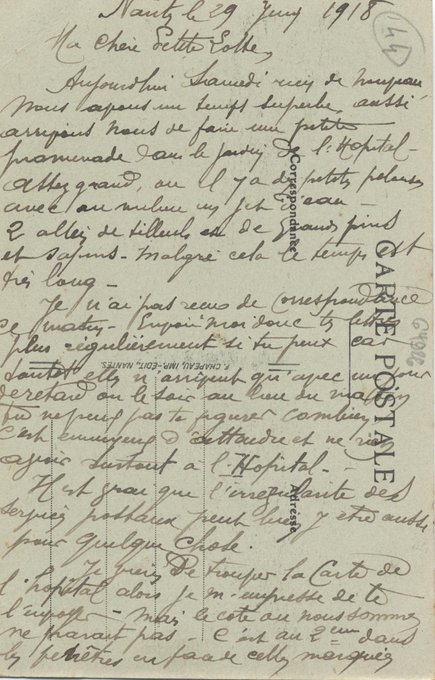 Nantes le 29 Juin 1918
Ma Chère Petite
Aujourdhui Samedi rien de nouveau
Nous avons un temps superbe aussi
nous de faire une petite
promenade dans le Jardin de l'Hopital -
assez grand, ou il y a de petites pelouses
avec au milieu un jet d'eau -
2 allées de tilleuls et de grands pins
et sapins - Malgré cela le temps est
très long -
Je n'ai pas recu de Correspondance
ce matin - Envoie moi donc tes lettres
plus régulièrement si tu peux car
elles n'arrivent qu'avec un jour
de retard ou le soir au lieu du matin
tu ne peux pas te figurer combien
c'est ennuyeux d'attendre et ne rien
avoir surtout à l'Hopital -
Il est vrai que l'irregularité des
services postaux peut bien y être aussi
pour quelque chose.
Je viens De trouver la Carte de
l'hopital alors je m'empresse de te
l'envoyer - mais le coté ou nous sommes
ne parait pas - C'est au 2eme dans
les fenêtres en façade celles marquées
144
CARTE POSTALE
Correspondance
Adresse
F. CHAPEAU, IMP.-EDIT., NANTES